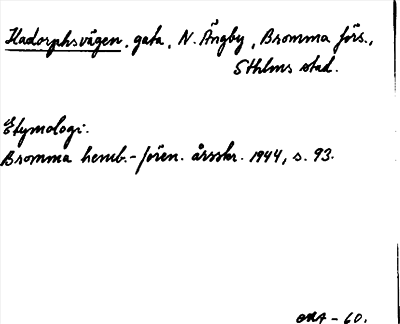 Hadorphsvägen, gata, N. Ängby, Bromma förs.,
Sthlms stad.
Etymologi:
Bromma hemb.-fören. årsskr. 1944, s. 93.
-60.